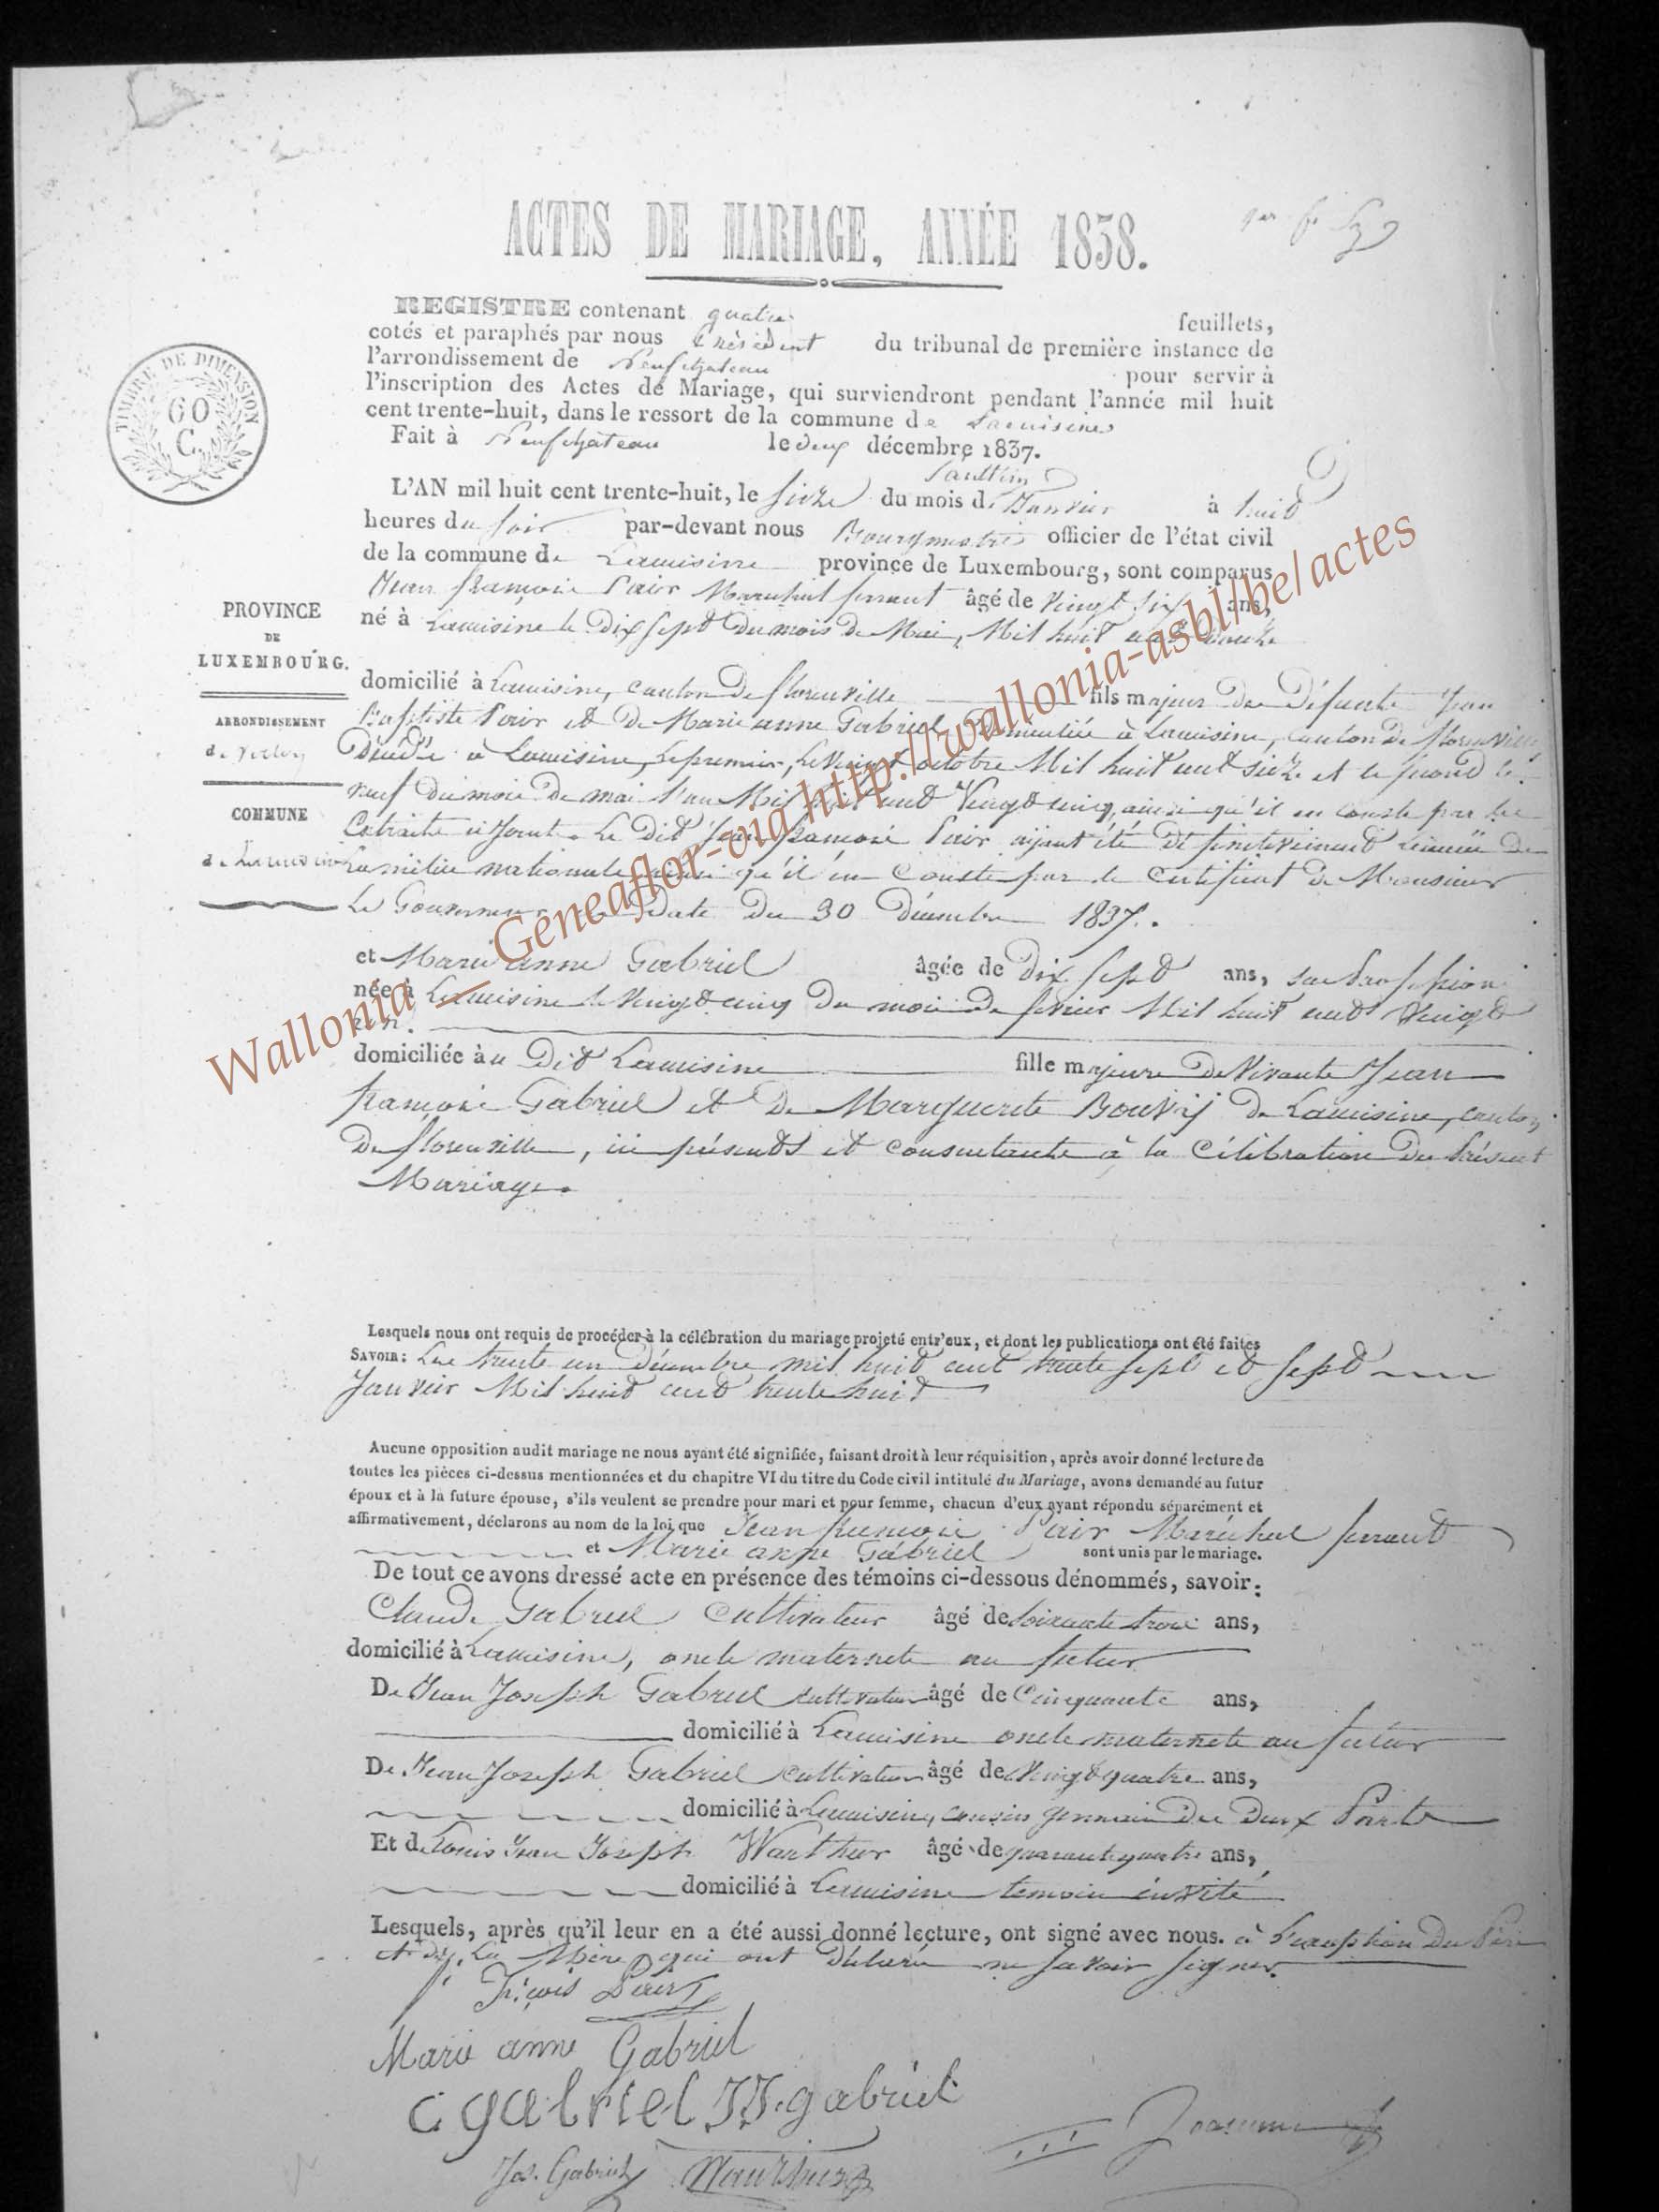 ACTES DE MARIAGE, ANNÉE 1838.
REGISTRE contenant quatre feuillets,
cotés et paraphés par nous Président du tribunal de première instance de
l'arrondissement de Neufchateau pour servir à
l'inscription des Actes de Mariage, qui surviendront pendant l'année mil huit
cent trente-huit, dans le ressort de la commune de
Fait à Neufchâteau le deux décembre 1837.
TIMBRE DE DIMENSION
60
C.
L'AN mil huit cent trente-huit, le seize du mois de Janvier à huit
heures du soir par-devant nous Bourgmestre officier de l'état civil
de la commune de Lacuisine province de Luxembourg, sont comparus
Jean françois Pair Maréchal ferrant âgé de Vingt six ans,
né à Lacuisine le Dix sept Du mois de Mai, Mil huit cent Douze
PROVINCE
DE
LUXEMBOURG.
domicilié à Lacuisine, canton De florenville fils majeur De Défunts Jean
ARRONDISSEMENT
de Virton
Baptiste Pair et De Marie anne Gabriel Domiciliée à Lacuisine, canton De florenville
Décédé à Lacuisine, Le premier, Le Vingt octobre Mil huit cent seize et le second le
COMMUNE
neuf du mois De mai l'an Mil huit cent Vingt cinq, ainsi qu'il en conste par les
Extraits ci Joint. Le Dit Jean françois Pair aijant été Définitivement
de Lacuisine
La milice nationale ainsi qu'il en Conste par le Certificat De Monsieur
Le Gouverneur Date Du 30 Décembre 1837.
et Marie anne Gabriel âgée de Dix sept ans, sans Profession
née à Lacuisine le Vingt cinq Du mois De fevrier Mil huit cent Vingt
un.
domiciliée àu Dit Lacuisine fille majeure De Vivants Jean
françois Gabriel et De Marguerite Bouvij De Lacuisine, canton
De florenville, ici présents et consentants à la Célébration Du Présent
Mariage.
Lesquels nous ont requis de procéder à la célébration du mariage projeté entr'eux, et dont les publications ont été faites
SAVOIR: Les trente un Décembre mil huit cent trente sept et sept
Janvier Mil huit cent trente huit
Aucune opposition audit mariage ne nous ayant été signifiée, faisant droit à leur réquisition, après avoir donné lecture de
toutes les pièces ci-dessus mentionnées et du chapitre VI du titre du Code civil intitulé du Mariage, avons demandé au futur
époux et à la future épouse, s'ils veulent se prendre pour mari et pour femme, chacun d'eux ayant répondu séparément et
affirmativement, déclarons au nom de la loi que Jean françois Pair Maréchal ferrant
et Marie anne Gabriel sont unis par le mariage.
De tout ce avons dressé acte en présence des témoins ci-dessous dénommés, savoir:
Claude Gabriel Cultivateur âgé de soixante trois ans,
domicilié à Lacuisine, oncle maternele au futur
De Jean Joseph Gabriel cultivateur âgé de Cinquante ans,
domicilié à Lacuisine oncle maternele au futur
De Jean Joseph Gabriel cultivateur âgé de Vingt quatre ans,
domicilié à Lacuisine, cousin germain Des Deux Parts
Et de Louis Jean Joseph Warthur âgé de quarante quatre ans,
domicilié à Lacuisine temoin invité
Lesquels, après qu'il leur en a été aussi donné lecture, ont signé avec nous. à L'exception Du Père
et De La Mère qui ont Déclaré ne savoir signer.
Marie anne Gabriel
C gabriel JJ. gabriel
Jos. Gabriel
Wallonia - Geneaflor-via http://wallonia-asbl/be/actes